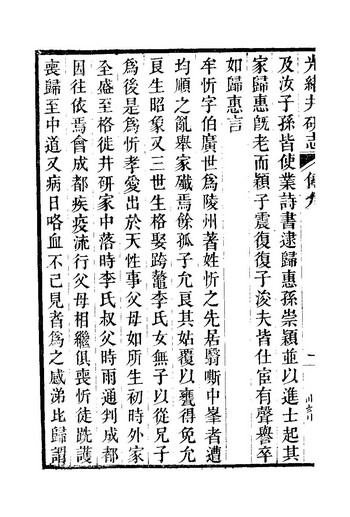 光緒井研志
傳九
二
及汝子孫皆使業詩書逮歸惠孫崇穎並以進士起其
家歸惠旣老而穎子震復復子浚夫皆仕宦有聲譽卒
如歸惠言
牟忻字伯廣世爲陵州著姓忻之先居翳嘶中峯者遭
均順之亂舉家殲焉餘孤子允良其姑覆以甕得免允
良生昭象又三世生格娶跨鼇李氏女無子以從兄子
爲後是爲忻孝愛出於天性事父母如所生初時外家
全盛至格徙井研家中落時李氏叔父時雨通判成都
因往依焉會成都疾疫流行父母相繼俱喪忻徒跣護
喪歸至中道又病日咯血不已見者爲之感涕比歸謂